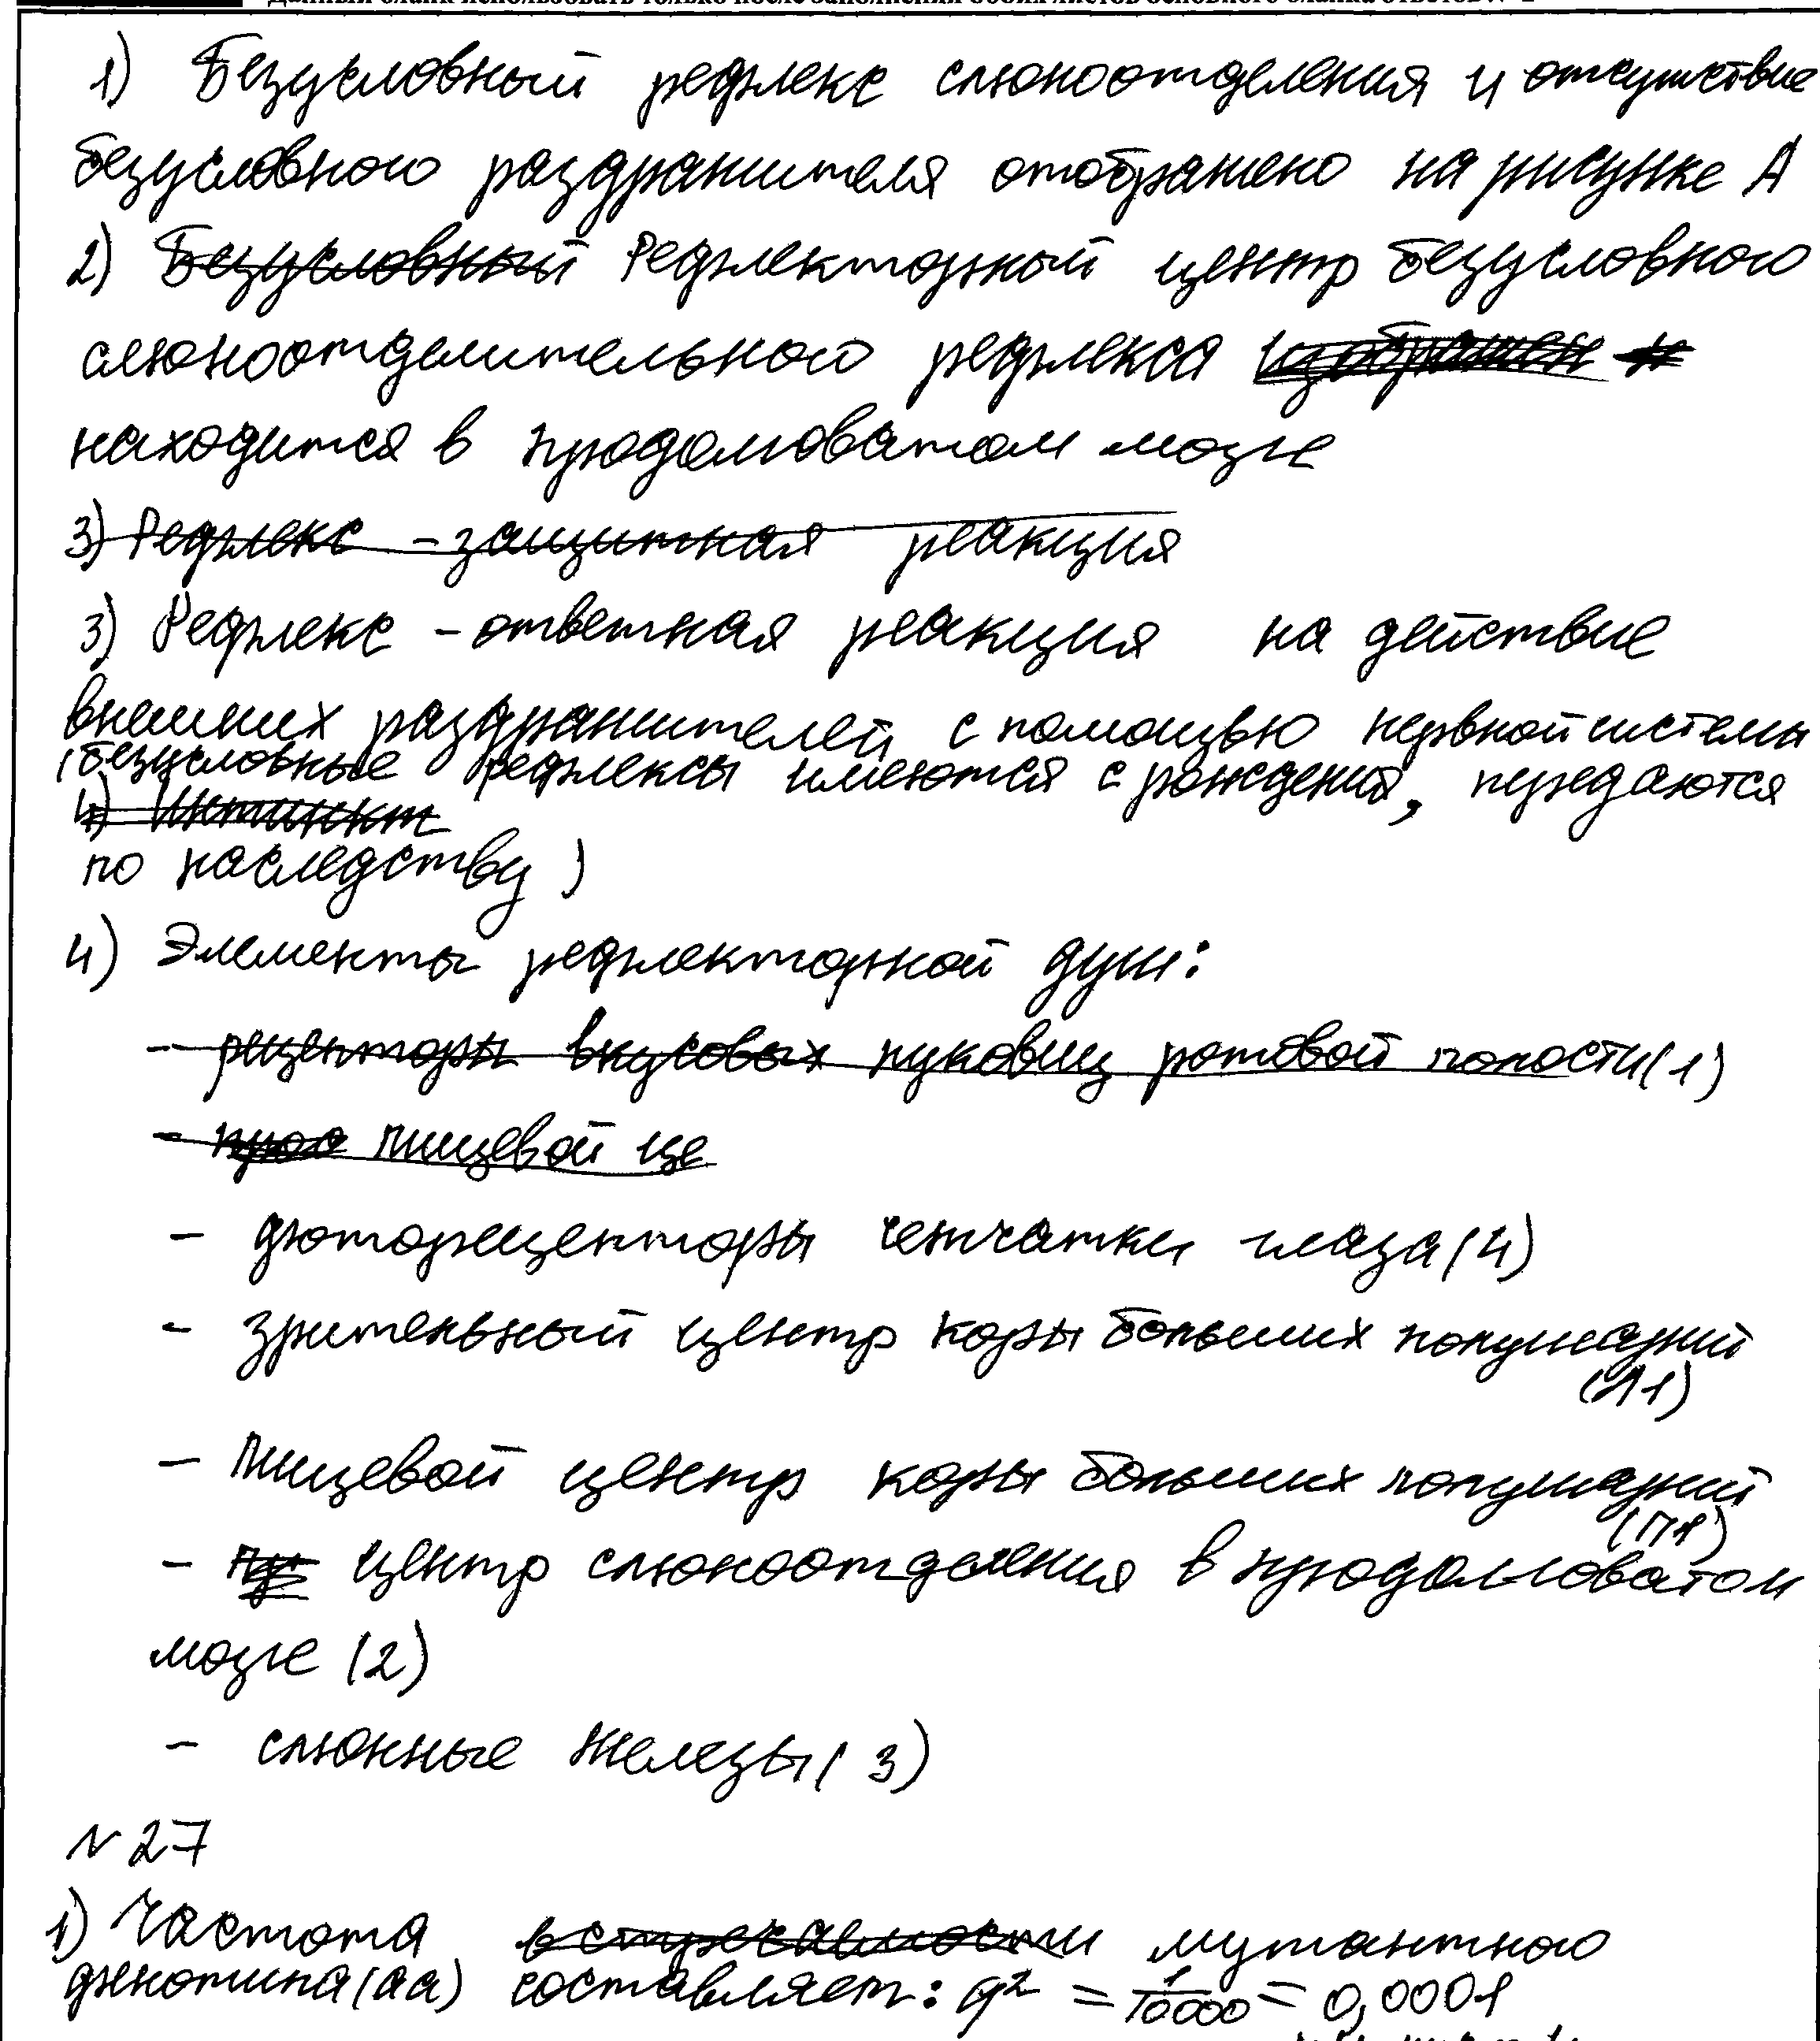 1) Безусловный рефлекс слюноотделения и отсутствие
безусловного раздражителя отображено на рисунке А
2) Безусловный Рефлекторный центр безусловного
слюноотделительного рефлекса изображен н
находится в продолговатом мозге
3) Рефлекс - защитная реакция
3) Рефлекс - ответная реакция на действие
внешних раздражителей с помощью нервной системы
(безусловные рефлексы имеются с рождения, передаются
4) Инстинкт
по наследству)
4) Элементы рефлекторной дуги:
- рецепторы вкусовых луковиц ротовой полости (1)
- прод пищевой це
- фоторецепторы сетчатки глаза (4)
- зрительный центр коры больших полушарий
(А1)
- пищевой центр коры больших полушарий
(П1)
- центр слюноотделения в продолговатом
мозге (2)
- слюнные железы (3)
№27
1) Частота встречаемости мутантного
фенотипа (аа) составляет: q² = 1/10000 = 0,0001